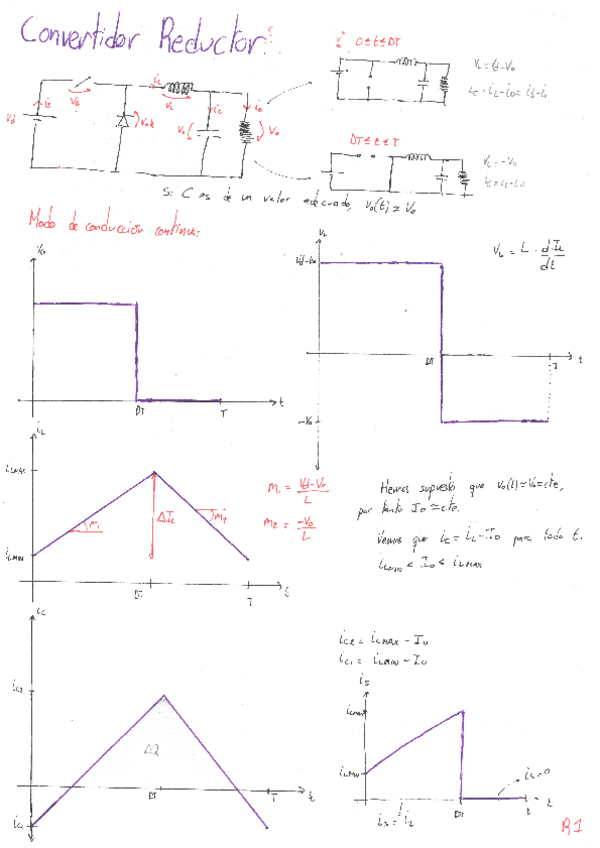 Convertidor Reductor:
0 ≤ t ≤ DT
VL = Vd - Vo
iC = iL - io = id - io
iL
VL
iC
io
Vd
Vo
Vo
DT ≤ t ≤ T
VL = -Vo
iC = iL - io
Si C es de un valor adecuado, vo(t) ≃ Vo
Modo de conducción continua:
VL
Vd-Vo
VL = L · dIL/dt
DT
T
t
-Vo
DT
T
t
iL
iLMAX
m1
ΔIL
m2
iLMIN
DT
T
t
m1 = Vd-Vo/L
m2 = -Vo/L
Hemos supuesto que vo(t)=Vo=cte,
por tanto Io ≃ cte.
Vemos que iC = iL - Io para todo t.
iLMIN < Io < iLMAX
iC
iC2
ΔQ
iC1
DT
T
t
iC2 = iLMAX - Io
iC1 = iLMIN - Io
is
iLMAX
iLMIN
is=0
is = iL
DT
t
B1